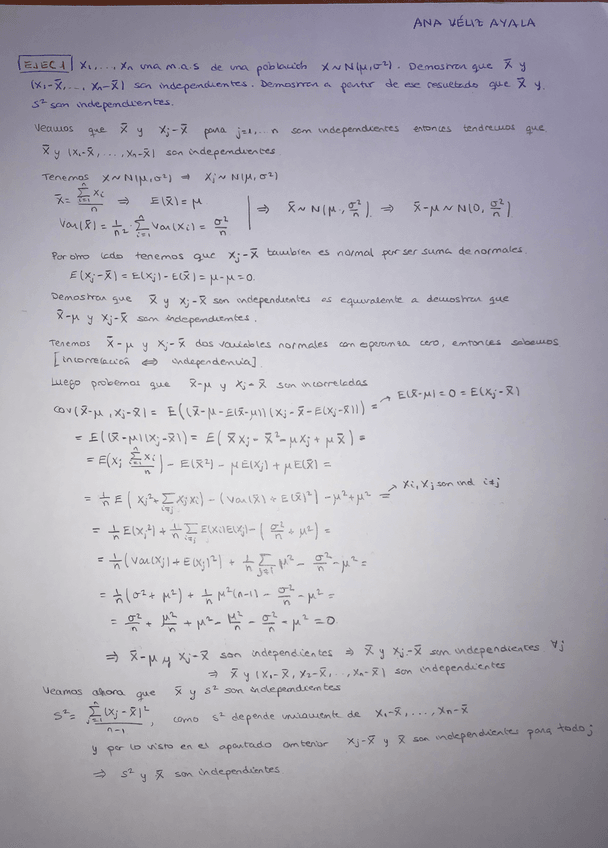 ANA VÉLIZ AYALA
EJEC 1 X₁, ..., Xn una m.a.s de una población X~N(μ,σ²). Demostrar que X̄ y
(X₁-X̄, ..., Xn-X̄) son independientes. Demostrar a partir de ese resultado que X̄ y
S² son independientes.
Veamos que X̄ y Xj-X̄ para j=1,...n son independientes entonces tendremos que
X̄ y (X₁-X̄, ..., Xn-X̄) son independientes.
Tenemos X~N(μ,σ²) ⇒ Xj~N(μ,σ²)
X̄ = ∑ᵢ₌₁ⁿ Xi / n ⇒ E(X̄) = μ
Var(X̄) = 1/n² · ∑ᵢ₌₁ⁿ Var(Xi) = σ²/n | ⇒ X̄~N(μ, σ²/n) ⇒ X̄-μ~N(0, σ²/n)
Por otro lado tenemos que Xj-X̄ tambien es normal por ser suma de normales.
E(Xj-X̄) = E(Xj) - E(X̄) = μ-μ=0.
Demostrar que X̄ y Xj-X̄ son independientes es equivalente a demostrar que
X̄-μ y Xj-X̄ son independientes.
Tenemos X̄-μ y Xj-X̄ dos variables normales con esperanza cero, entonces sabemos
[incorrelación ⇔ independencia]
Luego probemos que X̄-μ y Xj-X̄ son incorreladas
cov(X̄-μ, Xj-X̄) = E((X̄-μ-E(X̄-μ))(Xj-X̄-E(Xj-X̄))) = → E(X̄-μ) = 0 = E(Xj-X̄)
= E((X̄-μ)(Xj-X̄)) = E( X̄Xj - X̄² - μXj + μX̄ ) =
= E(Xj ∑ᵢ₌₁ⁿ Xi / n) - E(X̄²) - μE(Xj) + μE(X̄) =
= 1/n E( Xj² + ∑ᵢ≠ⱼ XjXi) - (Var(X̄) + E(X̄)²) - μ²+μ² = → Xi, Xj son ind i≠j
= 1/n E(Xj²) + 1/n ∑ᵢ≠ⱼ E(Xi)E(Xj) - ( σ²/n + μ²) =
= 1/n (Var(Xj) + E(Xj)²) + 1/n ∑ⱼ≠ᵢ μ² - σ²/n - μ² =
= 1/n (σ² + μ²) + 1/n μ²(n-1) - σ²/n - μ² =
= σ²/n + μ²/n + μ² - μ²/n - σ²/n - μ² = 0
⇒ X̄-μ y Xj-X̄ son independientes ⇒ X̄ y Xj-X̄ son independientes ∀j
⇒ X̄ y (X₁-X̄, X₂-X̄, ..., Xn-X̄) son independientes
Veamos ahora que X̄ y S² son independientes
S² = ∑ⱼ₌₁ⁿ (Xj-X̄)² / n-1, como S² depende unicamente de X₁-X̄, ..., Xn-X̄
y por lo visto en el apartado anterior Xj-X̄ y X̄ son independientes para todo j
⇒ S² y X̄ son independientes